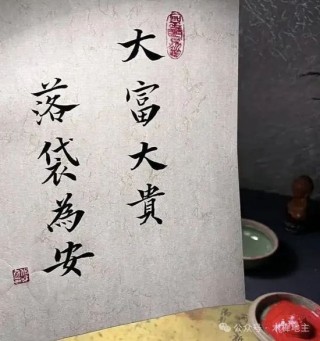 大富大貴
落袋為安
公众号